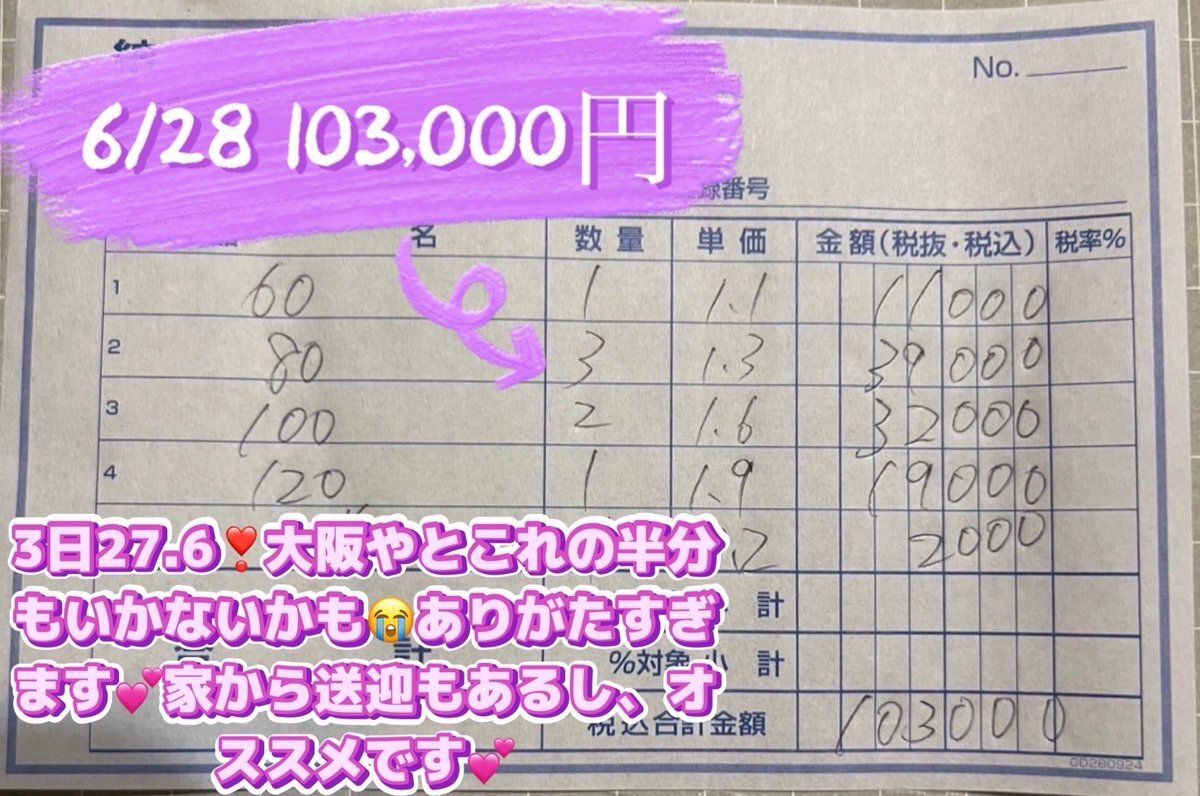 6/28 103,000円
No.
録番号
名 数量 単価 金額(税抜・税込) 税率%
1 60 1 1.1 11000
2 80 3 1.3 39000
3 100 2 1.6 32000
4 120 1 1.9 19000
.2 2000
計
%対象小計
税込合計金額 103000
3日27.6❣️大阪やとこれの半分
もいかないかも😭ありがたすぎ
ます💕家から送迎もあるし、オ
ススメです💕
GD280924